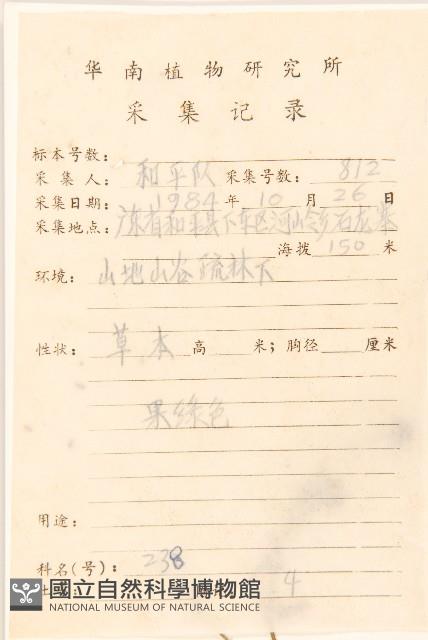 华南植物研究所
采集记录
标本号数：
采集人： 和平队 采集号数： 812
采集日期： 1984 年 10 月 26 日
采集地点： 广东省和平县下车区河山岭乡石龙寨
海拨 150 米
环境： 山地山谷疏林下
性状： 草本 高 米；胸径 厘米
果绿色
用途：
科名(号)： 238
4
國立自然科學博物館
NATIONAL MUSEUM OF NATURAL SCIENCE